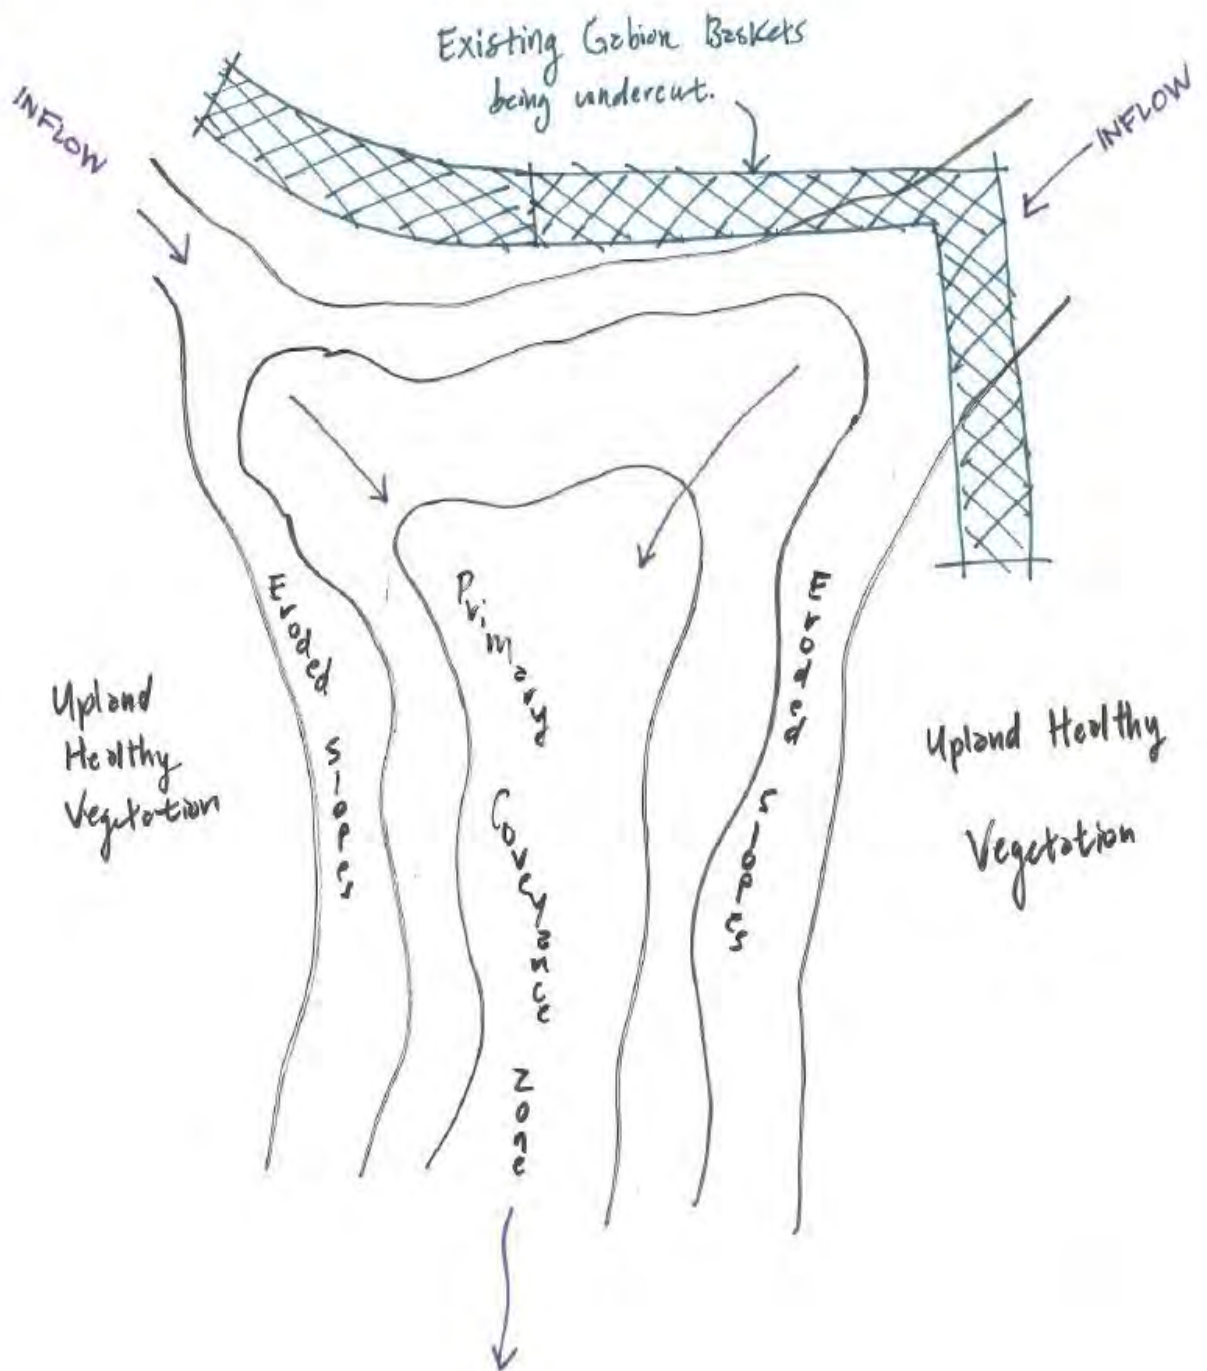 Existing Gabion Baskets
being undercut.
INFLOW
INFLOW
Eroded Slopes
Primary Coveyance Zone
Eroded Slopes
Upland
Healthy
Vegetation
Upland Healthy
Vegetation